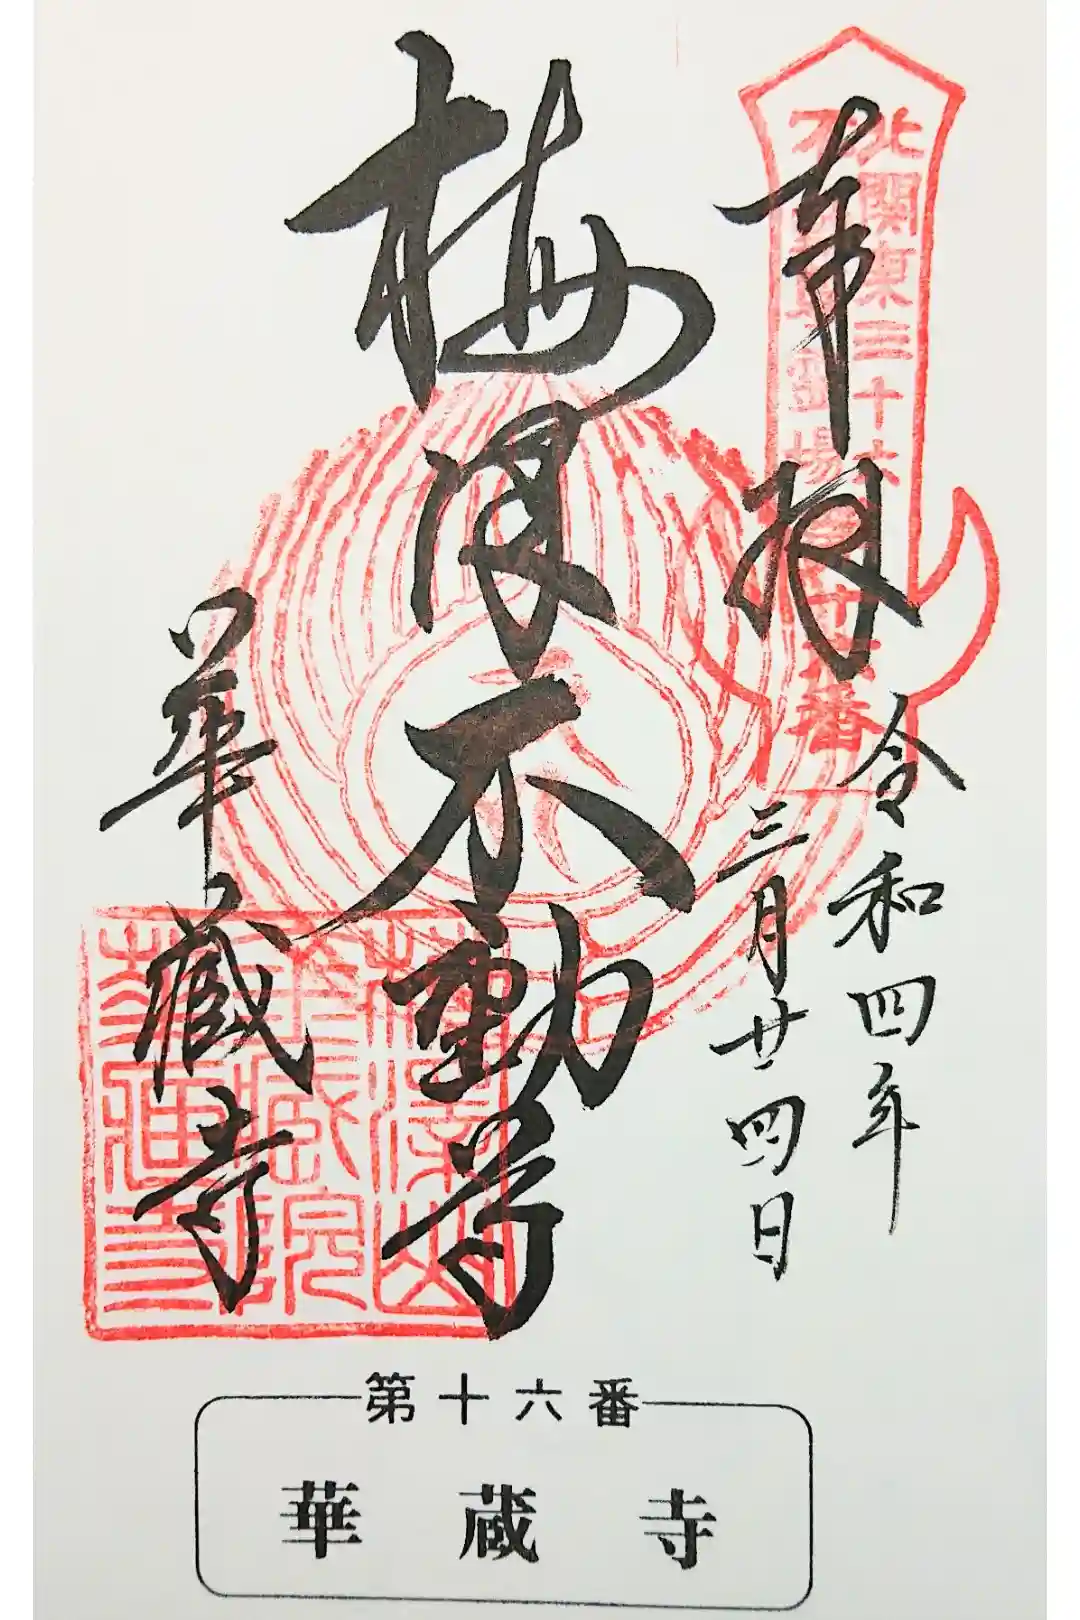 北関東三十六
不動尊霊場第十六番
奉拝
令和四年
三月廿四日
梅 不動尊
華蔵寺
第十六番
華蔵寺